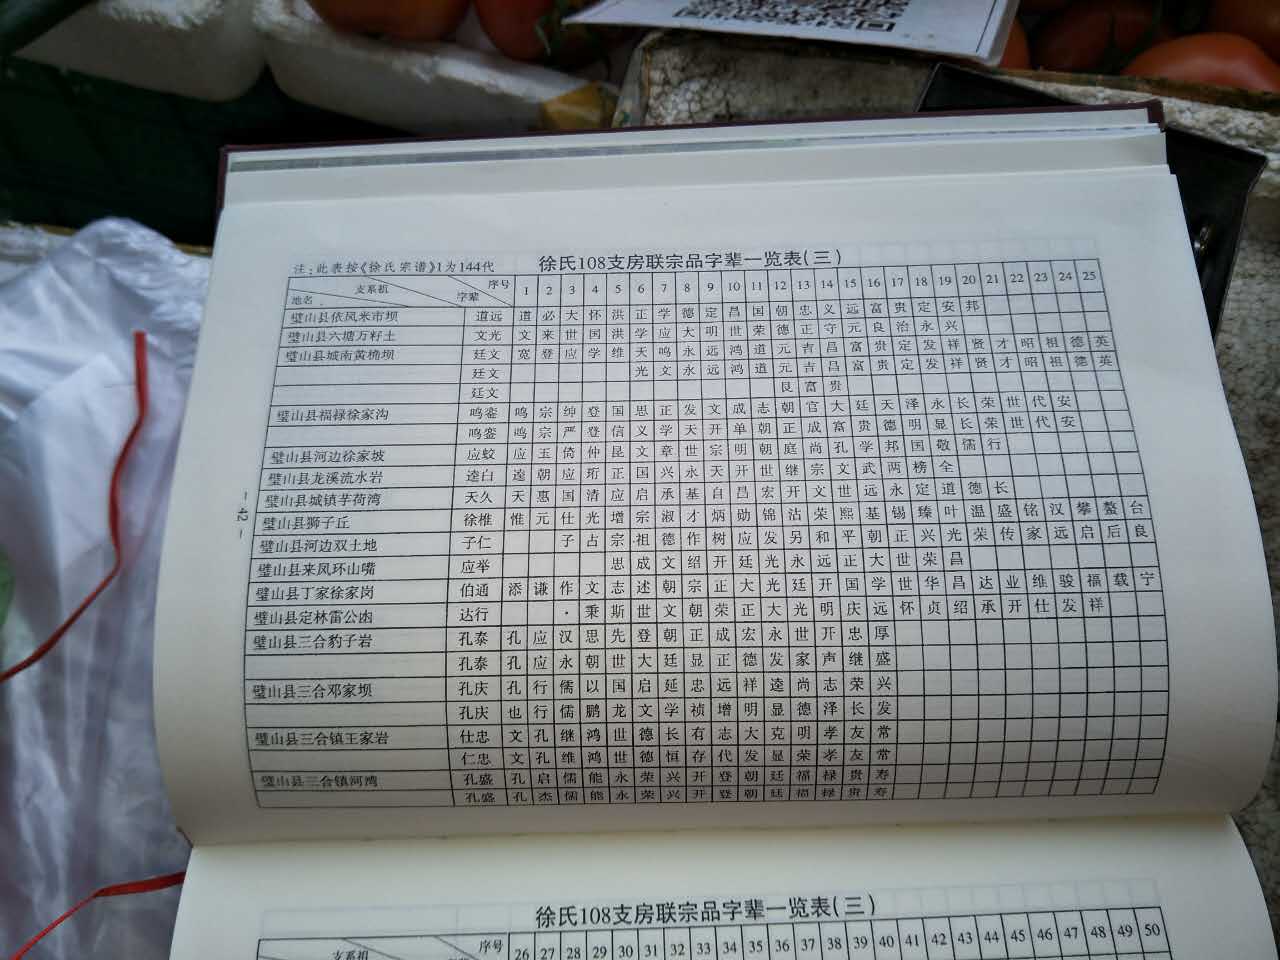 注:此表按《徐氏宗谱》1为144代 徐氏108支房联宗品字辈一览表(三)
地名 支系祖 字辈 序号 1 2 3 4 5 6 7 8 9 10 11 12 13 14 15 16 17 18 19 20 21 22 23 24 25
璧山县依凤米市坝 道远 道 必 大 怀 洪 正 学 德 定 昌 国 朝 忠 义 远 富 贵 定 安 邦
璧山县六塘万籽土 文光 文 来 世 国 洪 学 应 大 明 世 荣 德 正 守 元 良 治 永 兴
璧山县城南黄桷坝 廷文 宽 登 应 学 维 天 鸣 永 远 鸿 道 元 吉 昌 富 贵 定 发 祥 贤 才 昭 祖 德 英
廷文 光 文 永 远 鸿 道 元 吉 昌 富 贵 定 发 祥 贤 才 昭 祖 德 英
廷文 良 富 贵
璧山县福禄徐家沟 鸣銮 鸣 宗 绅 登 国 思 正 发 文 成 志 朝 官 大 廷 天 泽 永 长 荣 世 代 安
鸣銮 鸣 宗 严 登 信 义 学 天 开 单 朝 正 成 富 贵 德 明 显 长 荣 世 代 安
璧山县河边徐家坡 应蛟 应 玉 倚 仲 昆 文 章 世 宗 明 朝 庭 尚 孔 学 邦 国 敬 儒 行
璧山县龙溪流水岩 逵白 逵 朝 应 珩 正 国 兴 永 天 开 世 继 宗 文 武 两 榜 全
璧山县城镇芋荷湾 天久 天 惠 国 清 应 启 承 基 自 昌 宏 开 文 世 远 永 定 道 德 长
璧山县狮子丘 徐椎 惟 元 仕 光 增 宗 淑 才 炳 勋 锦 沾 荣 熙 基 锡 臻 叶 温 盛 铭 汉 攀 鳌 台
璧山县河边双土地 子仁 子 占 宗 祖 德 作 树 应 发 另 和 平 朝 正 兴 光 荣 传 家 远 启 后 良
璧山县来凤环山嘴 应举 思 成 文 绍 开 廷 光 永 远 正 大 世 荣 昌
璧山县丁家徐家岗 伯通 添 谦 作 文 志 述 朝 宗 正 大 光 廷 开 国 学 世 华 昌 达 业 维 骏 福 载 宁
璧山县定林雷公凼 达行 · 秉 斯 世 文 朝 荣 正 大 光 明 庆 远 怀 贞 绍 承 开 仕 发 祥
璧山县三合豹子岩 孔泰 孔 应 汉 思 先 登 朝 正 成 宏 永 世 开 忠 厚
孔泰 孔 应 永 朝 世 大 廷 显 正 德 发 家 声 继 盛
璧山县三合邓家坝 孔庆 孔 行 儒 以 国 启 延 忠 远 祥 逵 尚 志 荣 兴
孔庆 也 行 儒 鹏 龙 文 学 祯 增 明 显 德 泽 长 发
璧山县三合镇王家岩 仕忠 文 孔 继 鸿 世 德 长 有 志 大 克 明 孝 友 常
仁忠 文 孔 维 鸿 世 德 恒 存 代 发 显 荣 孝 友 常
璧山县三合镇河湾 孔盛 孔 启 儒 能 永 荣 兴 开 登 朝 廷 福 禄 贵 寿
孔盛 孔 杰 儒 能 永 荣 兴 开 登 朝 廷 福 禄 贵 寿
－42－
徐氏108支房联宗品字辈一览表(三)
支系祖 序号 26 27 28 29 30 31 32 33 34 35 36 37 38 39 40 41 42 43 44 45 46 47 48 49 50